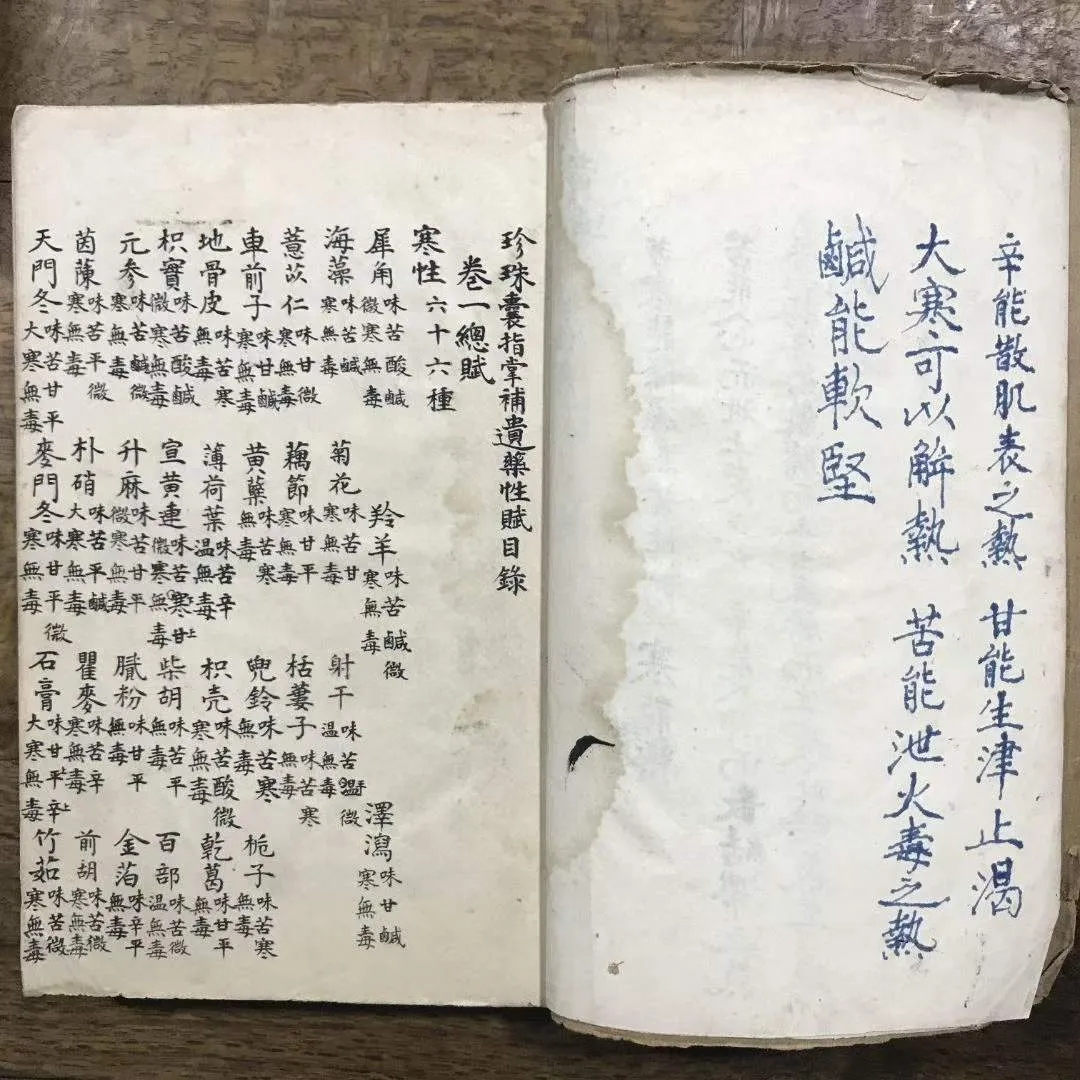 辛能散肌表之熱 甘能生津止渴
大寒可以解熱 苦能泄火毒之熱
鹹能軟堅
珍珠囊指掌補遺藥性賦目錄
卷一總賦
寒性六十六種
犀角味苦酸鹹微寒無毒 羚羊味苦鹹微寒無毒 澤瀉味甘鹹寒無毒
海藻味苦鹹寒無毒 菊花味苦甘寒無毒 射干味苦微温無毒
薏苡仁味甘微寒無毒 藕節味甘平寒無毒 栝蔞子味苦寒
車前子味甘鹹寒無毒 黄蘗味苦寒無毒 兜鈴味苦寒無毒 梔子味苦寒無毒
地骨皮味苦寒無毒 薄荷葉味苦辛温無毒 枳壳味苦酸微寒無毒 乾葛味甘平無毒
枳實味苦酸鹹微寒無毒 宣黄連味苦寒甘微寒無毒 柴胡味苦平無毒 百部味苦微温無毒
元參味苦鹹微寒無毒 升麻味苦甘平微寒無毒 膩粉味甘平無毒 金箔味辛平無毒
茵蔯味苦平微寒無毒 朴硝味苦平鹹大寒無毒 瞿麥味苦辛寒無毒 前胡味苦微寒無毒
天門冬味苦甘平大寒無毒 麥門冬味甘平微寒無毒 石膏味甘平辛大寒無毒 竹茹味苦微寒無毒